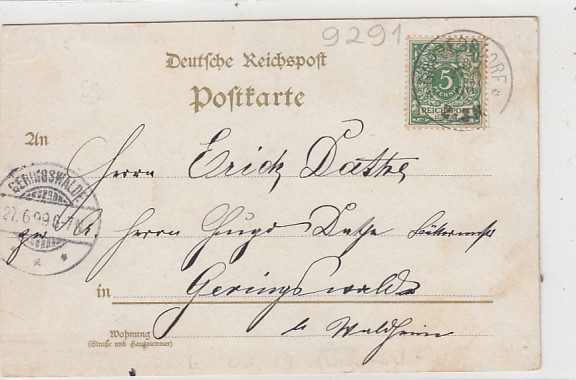 9291
Deutsche Reichspost
Postkarte
5
PFENNIG
REICHSPOST
ORF
An
Herrn Erick Dathe
GERINGSWALDE
27.6.99. 6-7N.
Herrn Hugo Dathe
in Geringswalde
b. Waldheim
Wohnung
(Straße und Hausnummer)